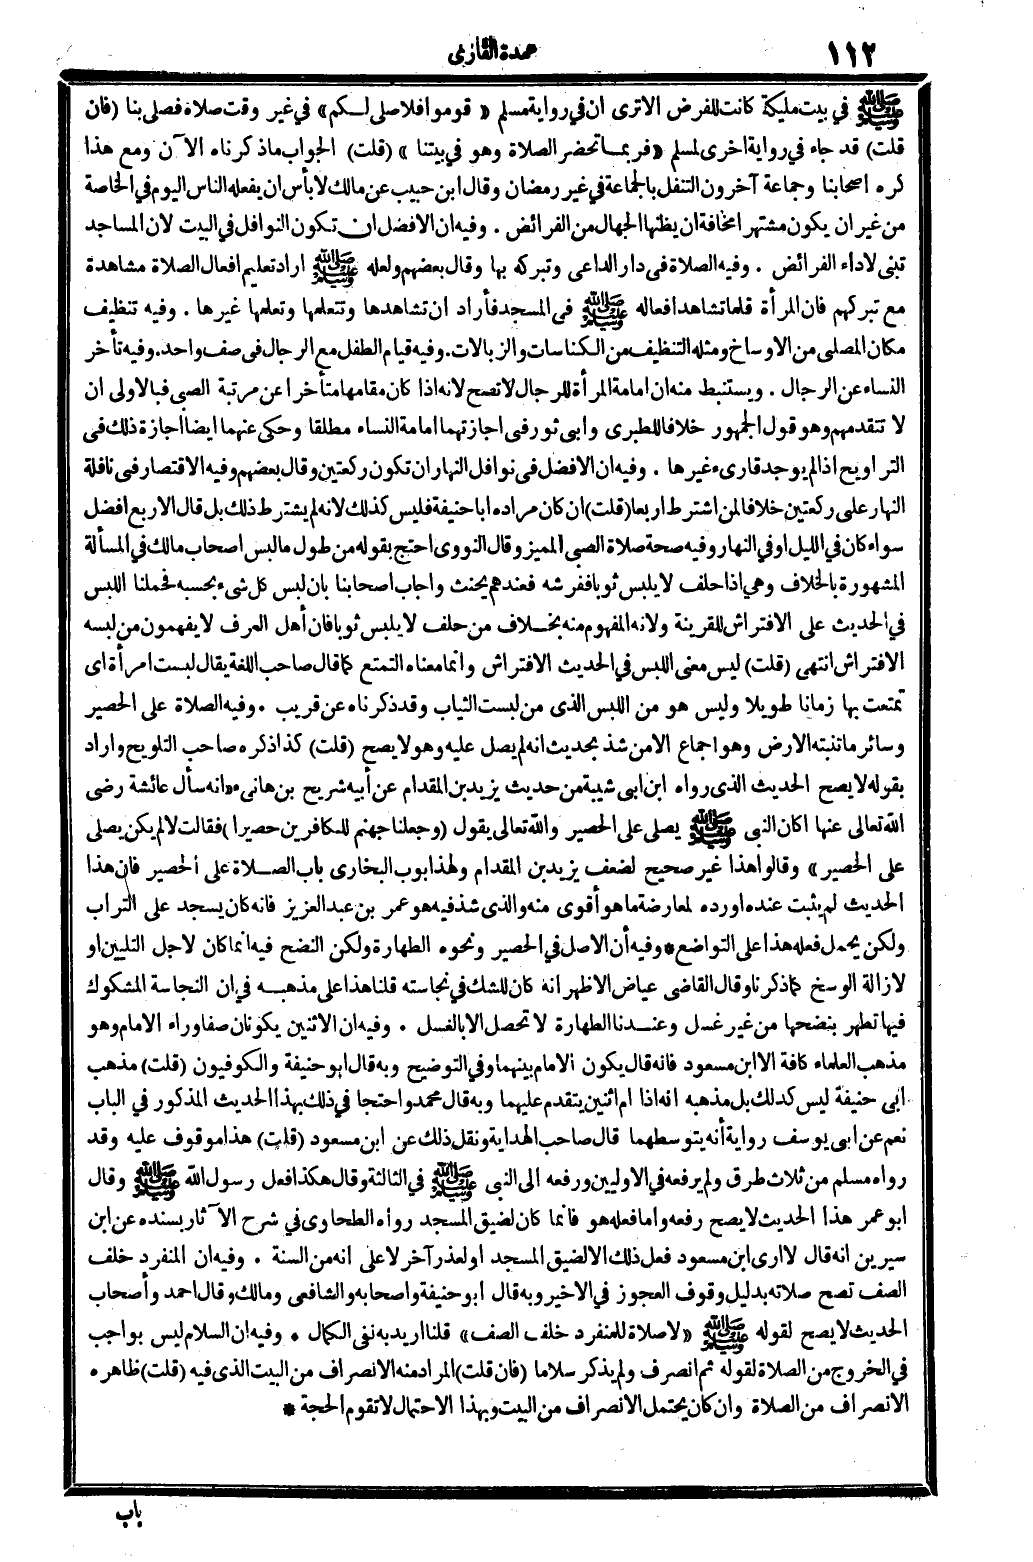 ١١٢
عمدة القارئ
ﷺ في بيت مليكة كانت للفرض الا ترى ان في رواية مسلم « قوموا فلا صلى لكم » في غير وقت صلاة فصلى بنا (فان
قلت) قد جاء في رواية اخرى لمسلم « فربما تحضر الصلاة وهو في بيتنا » (قلت) الجواب ما ذكرناه الآن ومع هذا
كره اصحابنا وجماعة آخرون التنفل بالجماعة في غير رمضان وقال ابن حبيب عن مالك لا بأس ان يفعله الناس اليوم في الخاصة
من غير ان يكون مشتهرا مخافة ان يظنها الجهال من الفرائض . وفيه ان الافضل ان تكون النوافل في البيت لان المساجد
تبنى لاداء الفرائض . وفيه الصلاة في دار الداعى وتبركه بها وقال بعضهم ولعله ﷺ اراد تعليم افعال الصلاة مشاهدة
مع تبركهم فان المرأة قلما تشاهد افعاله ﷺ في المسجد فأراد ان تشاهدها وتتعلمها وتعلمها غيرها . وفيه تنظيف
مكان المصلى من الاوساخ ومثله التنظيف من الكناسات والزبالات . وفيه قيام الطفل مع الرجال في صف واحد . وفيه تأخر
النساء عن الرجال . ويستنبط منه ان امامة المرأة للرجال لا تصح لانه اذا كان مقامها متأخرا عن مرتبة الصبى فبالاولى ان
لا تتقدمهم وهو قول الجمهور خلافا للطبرى وابى ثور في اجازتهما امامة النساء مطلقا وحكى عنهما ايضا اجازة ذلك في
التراويح اذا لم يوجد قارىء غيرها . وفيه ان الافضل في نوافل النهار ان تكون ركعتين وقال بعضهم وفيه الاقتصار في نافلة
النهار على ركعتين خلافا لمن اشترط اربعا (قلت) ان كان مراده ابا حنيفة فليس كذلك لانه لم يشترط ذلك بل قال الاربع افضل
سواء كان في الليل او في النهار وفيه صحة صلاة الصبى المميز وقال النووى احتج بقوله من طول ما لبس اصحاب مالك في المسألة
المشهورة بالخلاف وهي اذا حلف لا يلبس ثوبا ففرشه فعندهم يحنث واجاب اصحابنا بان لبس كل شىء بحسبه فحملنا اللبس
في الحديث على الافتراش للقرينة ولانه المفهوم منه بخلاف من حلف لا يلبس ثوبا فان أهل العرف لا يفهمون من لبسه
الافتراش انتهى (قلت) ليس معنى اللبس في الحديث الافتراش وانما معناه التمتع كما قال صاحب اللغة يقال لبست امرأة اى
تمتعت بها زمانا طويلا وليس هو من اللبس الذى من لبست الثياب وقد ذكرناه عن قريب . وفيه الصلاة على الحصير
وسائر ما تنبته الارض وهو اجماع الا من شذ بحديث انه لم يصل عليه وهو لا يصح (قلت) كذا ذكره صاحب التلويح واراد
بقوله لا يصح الحديث الذى رواه ابن ابى شيبة من حديث يزيد بن المقدام عن أبيه شريح بن هانىء « انه سأل عائشة رضى
الله تعالى عنها اكان النبى ﷺ يصلى على الحصير والله تعالى يقول (وجعلنا جهنم للكافرين حصيرا) فقالت لا لم يكن يصلى
على الحصير » وقالوا هذا غير صحيح لضعف يزيد بن المقدام ولهذا بوب البخارى باب الصلاة على الحصير فان هذا
الحديث لم يثبت عنده او رده لمعارضة ما هو أقوى منه والذى شذ فيه هو عمر بن عبد العزيز فانه كان يسجد على التراب
ولكن يحمل فعله هذا على التواضع * وفيه أن الاصل في الحصير ونحوه الطهارة ولكن النضح فيه انما كان لاجل التليين او
لازالة الوسخ كما ذكرنا وقال القاضى عياض الاظهر انه كان للشك في نجاسته قلنا هذا على مذهبه في ان النجاسة المشكوك
فيها تطهر بنضحها من غير غسل وعندنا الطهارة لا تحصل الا بالغسل . وفيه ان الاثنين يكونان صفا وراء الامام وهو
مذهب العلماء كافة الا ابن مسعود فانه قال يكون الامام بينهما وفي التوضيح وبه قال ابو حنيفة والكوفيون (قلت) مذهب
ابى حنيفة ليس كذلك بل مذهبه انه اذا ام اثنين يتقدم عليهما وبه قال محمد واحتجا في ذلك بهذا الحديث المذكور في الباب
نعم عن ابى يوسف رواية أنه يتوسطهما قال صاحب الهداية ونقل ذلك عن ابن مسعود (قلت) هذا موقوف عليه وقد
رواه مسلم من ثلاث طرق ولم يرفعه في الاوليين ورفعه الى النبى ﷺ في الثالثة وقال هكذا فعل رسول الله ﷺ وقال
ابو عمر هذا الحديث لا يصح رفعه واما فعله هو فانما كان لضيق المسجد رواه الطحاوى في شرح الآثار بسنده عن ابن
سيرين انه قال لا ارى ابن مسعود فعل ذلك الا لضيق المسجد او لعذر آخر لا على انه من السنة . وفيه ان المنفرد خلف
الصف تصح صلاته بدليل وقوف العجوز في الاخير وبه قال ابو حنيفة واصحابه والشافعى ومالك وقال احمد وأصحاب
الحديث لا يصح لقوله ﷺ « لا صلاة للمنفرد خلف الصف » قلنا اريد به نفى الكمال * وفيه ان السلام ليس بواجب
في الخروج من الصلاة لقوله ثم انصرف ولم يذكر سلاما (فان قلت) المراد منه الانصراف من البيت الذى فيه (قلت) ظاهره
الانصراف من الصلاة وان كان يحتمل الانصراف من البيت وبهذا الاحتمال لا تقوم الحجة *
باب